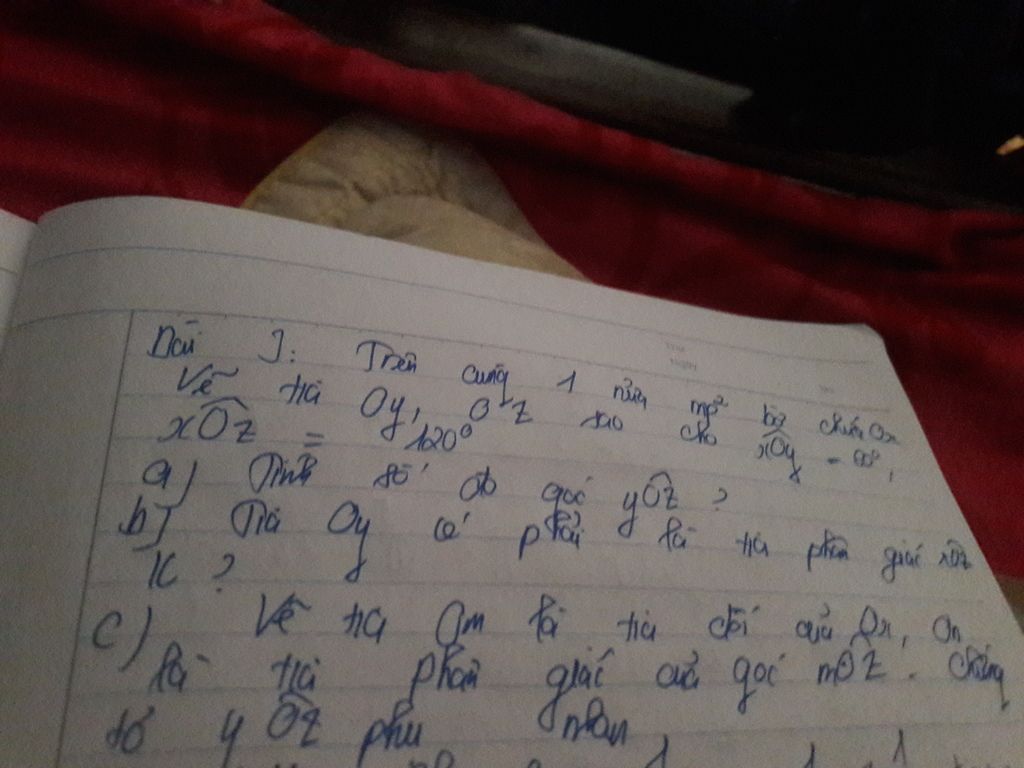 Bài 1: Trên cùng 1 nửa mp² bờ chứa Ox
Vẽ tia Oy, Oz sao cho xOy
xOz = 120°
a) Tính số đo góc yOz ?
b) Tia Oy có phải là tia phân giác xOz
K ?
c) Vẽ tia Om là tia đối của Ox, On
là tia phân giác của góc mOz. Chứng
tỏ yOz phụ nhau